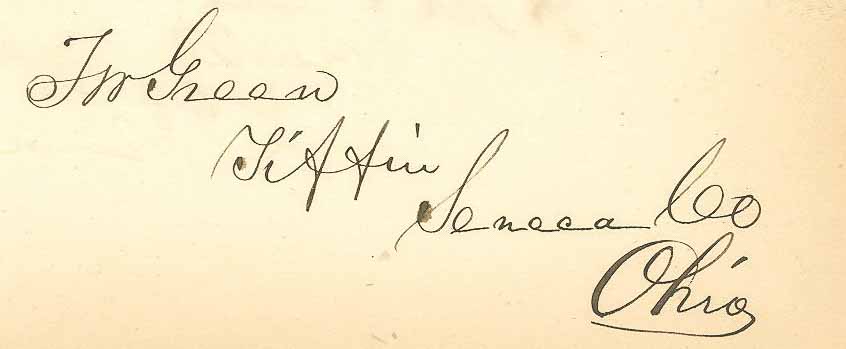 T W Green
Tiffin
Seneca Co
Ohio